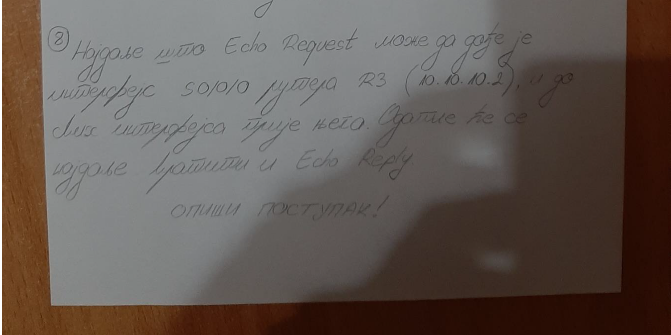 8 Најдаље што Echo Request може да дође је
интерфејс S0/0/0 рутера R3 (10.10.10.2), и до
свих интерфејса прије њега. Одатле ће се
најдаље вратити и Echo Reply
ОПИШИ ПОСТУПАК!